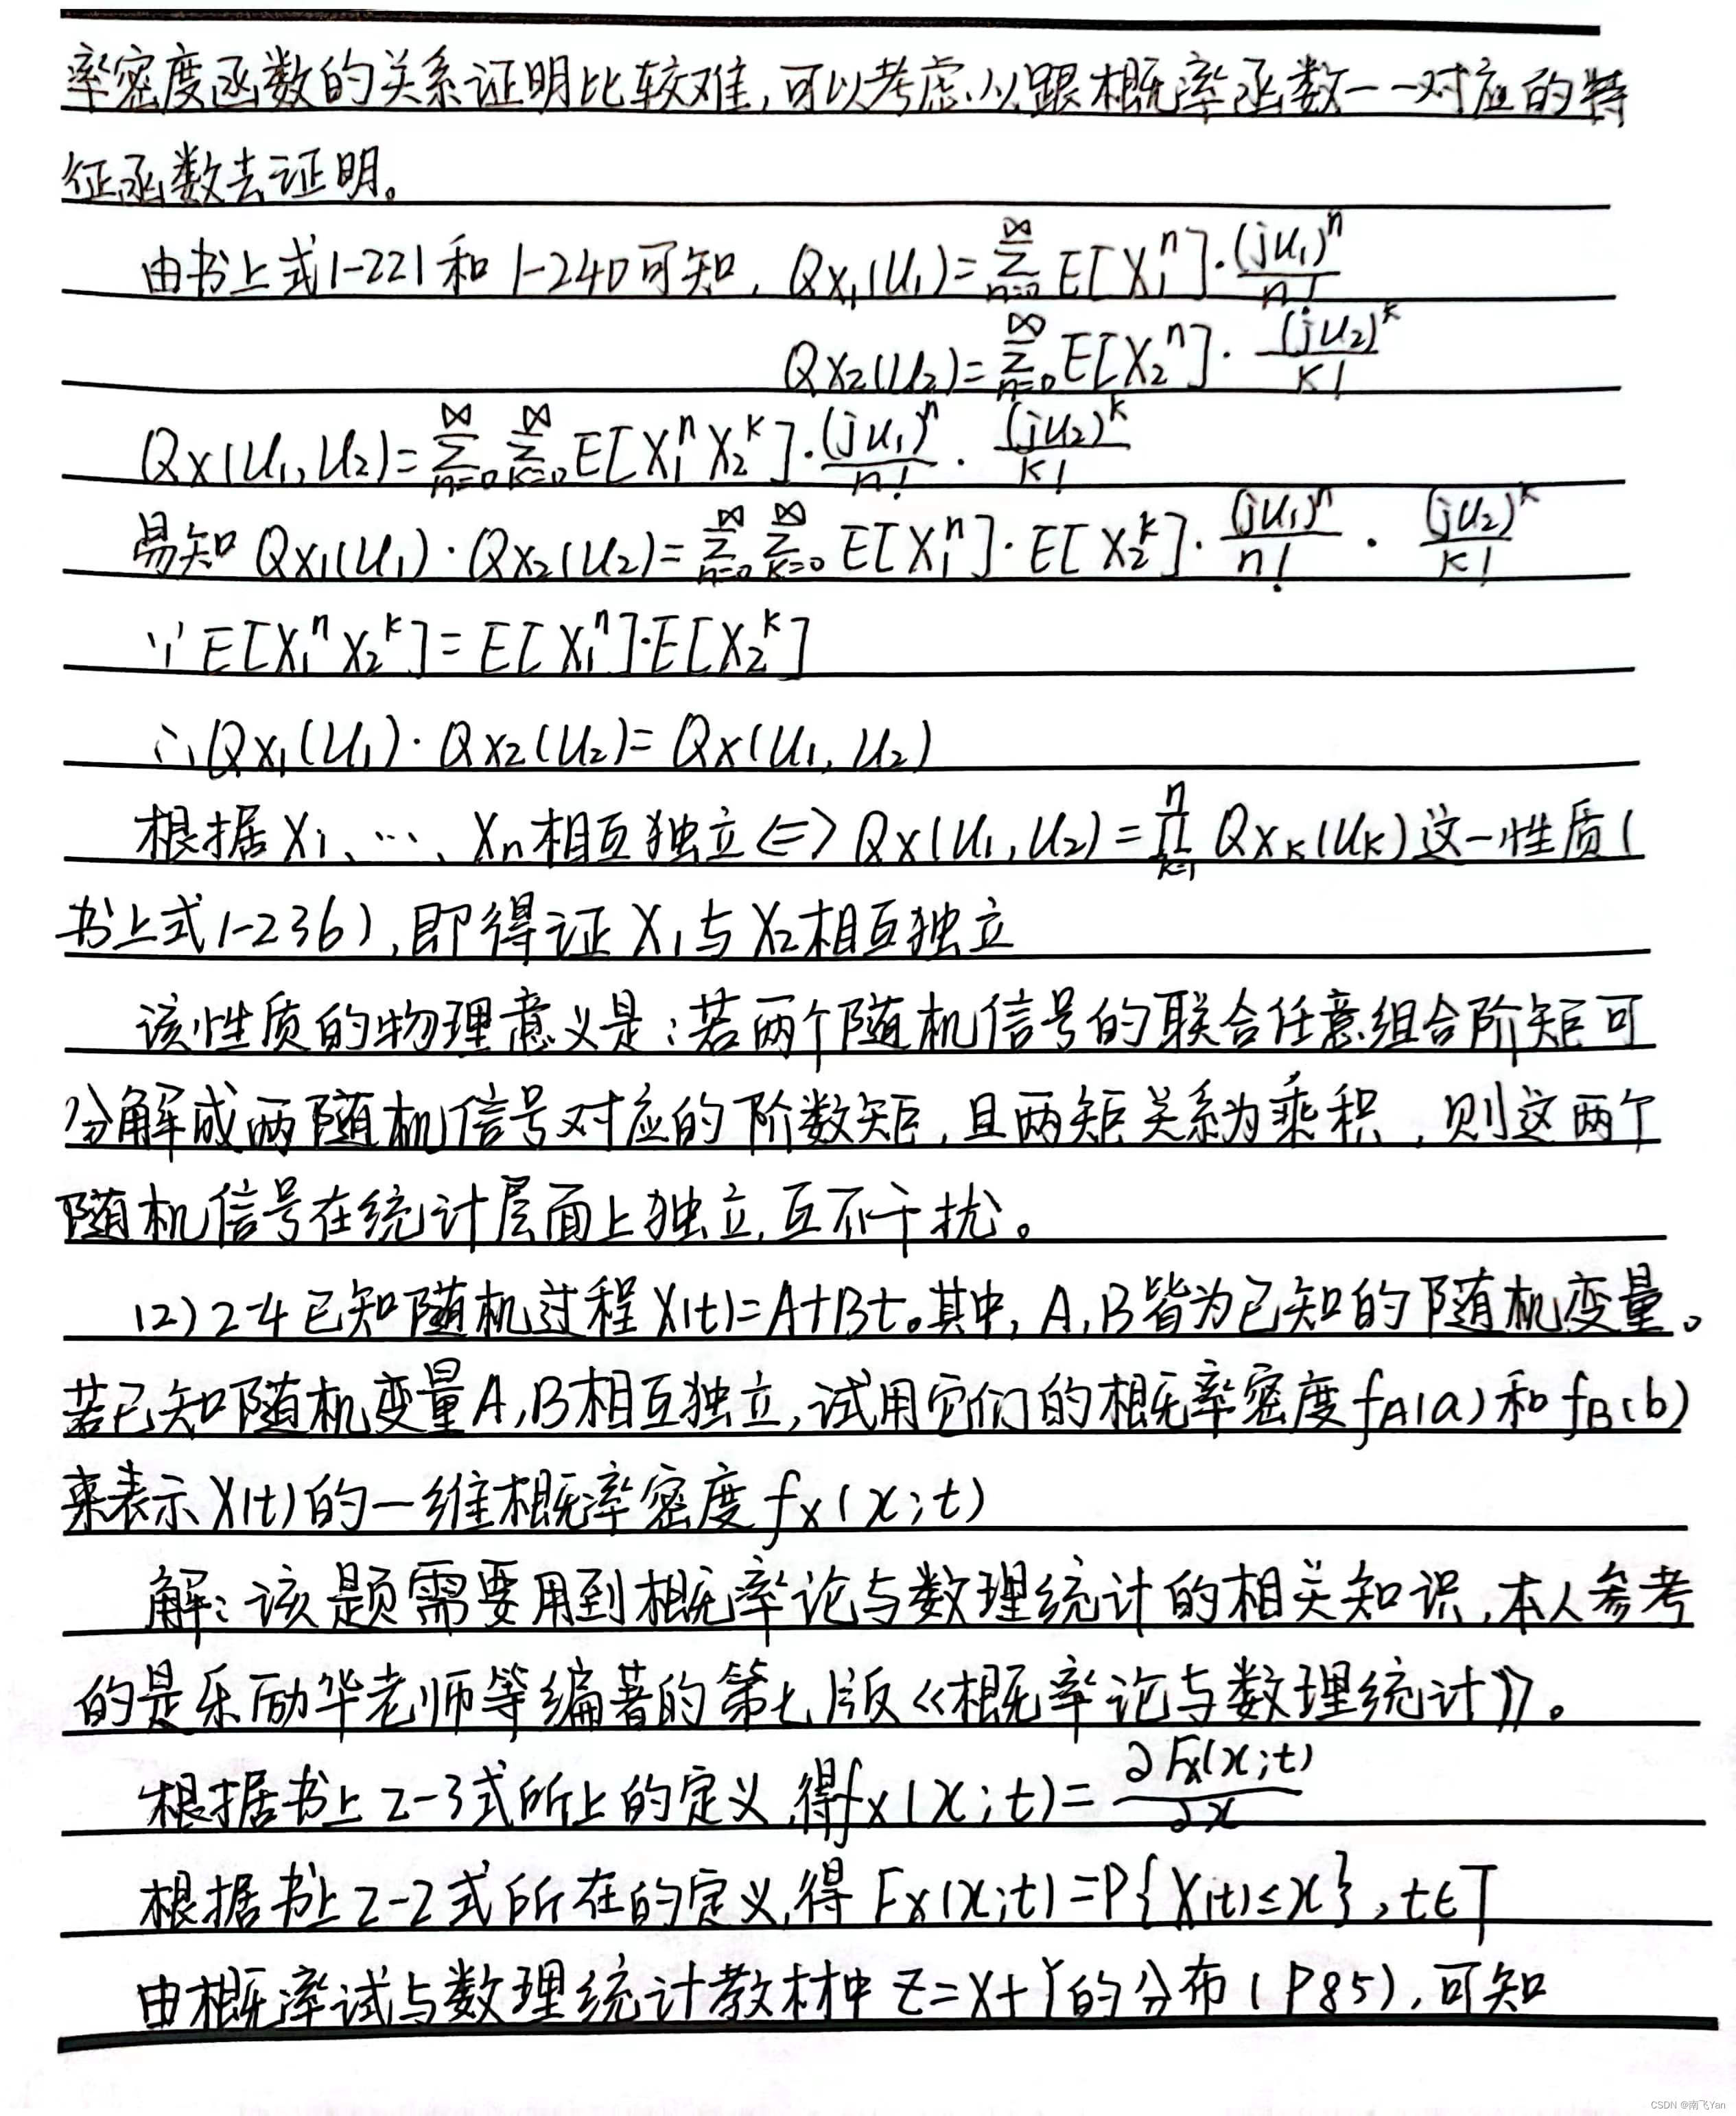 率密度函数的关系证明比较难,可以考虑从跟概率函数一一对应的特
征函数去证明。
由书上式1-221和1-240可知, Qx₁(u₁)=∑_{n=0}^{∞} E[X₁ⁿ]·(ju₁)ⁿ/n!
Qx₂(u₂)=∑_{n=0}^{∞} E[X₂ⁿ]·(ju₂)ᵏ/k!
Qx(u₁,u₂)=∑_{n=0}^{∞} ∑_{k=0}^{∞} E[X₁ⁿX₂ᵏ]·(ju₁)ⁿ/n!·(ju₂)ᵏ/k!
易知 Qx₁(u₁)·Qx₂(u₂)=∑_{n=0}^{∞} ∑_{k=0}^{∞} E[X₁ⁿ]·E[X₂ᵏ]·(ju₁)ⁿ/n!·(ju₂)ᵏ/k!
∵E[X₁ⁿX₂ᵏ]=E[X₁ⁿ]·E[X₂ᵏ]
∴Qx₁(u₁)·Qx₂(u₂)=Qx(u₁,u₂)
根据X₁、…、Xn相互独立⇔Qx(u₁,u₂)=∏_{k=1}^{n} Qxₖ(uₖ)这一性质(
书上式1-236),即得证X₁与X₂相互独立
该性质的物理意义是:若两个随机信号的联合任意组合阶矩可
分解成两随机信号对应的阶数矩,且两矩关系为乘积,则这两个
随机信号在统计层面上独立,互不干扰。
(2)2-4已知随机过程X(t)=A+Bt。其中,A,B皆为已知的随机变量。
若已知随机变量A,B相互独立,试用它们的概率密度fA(a)和fB(b)
来表示X(t)的一维概率密度fx(x;t)
解:该题需要用到概率论与数理统计的相关知识,本人参考
的是乐励华老师等编著的第七版《概率论与数理统计》。
根据书上2-3式所上的定义,得fx(x;t)=∂Fx(x;t)/∂x
根据书上2-2式所在的定义,得Fx(x;t)=P{X(t)≤x},t∈T
由概率试与数理统计教材中Z=X+Y的分布(P85),可知
CSDN @南飞Yan